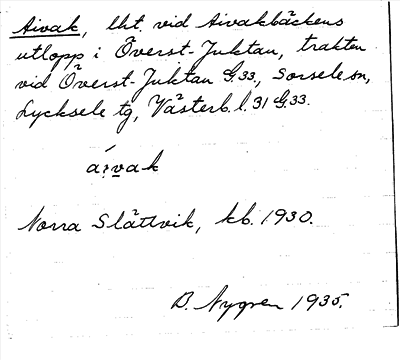 Aivak, lht. vid Aivakbäckens
utlopp i Överst-Juktan, trakten
vid Överst-Juktan G.33., Sorsele sn,
Lycksele tg, Västerb. l. 31 G.33.
Norra Slättvik, kb. 1930.
B. Nygren 1935.